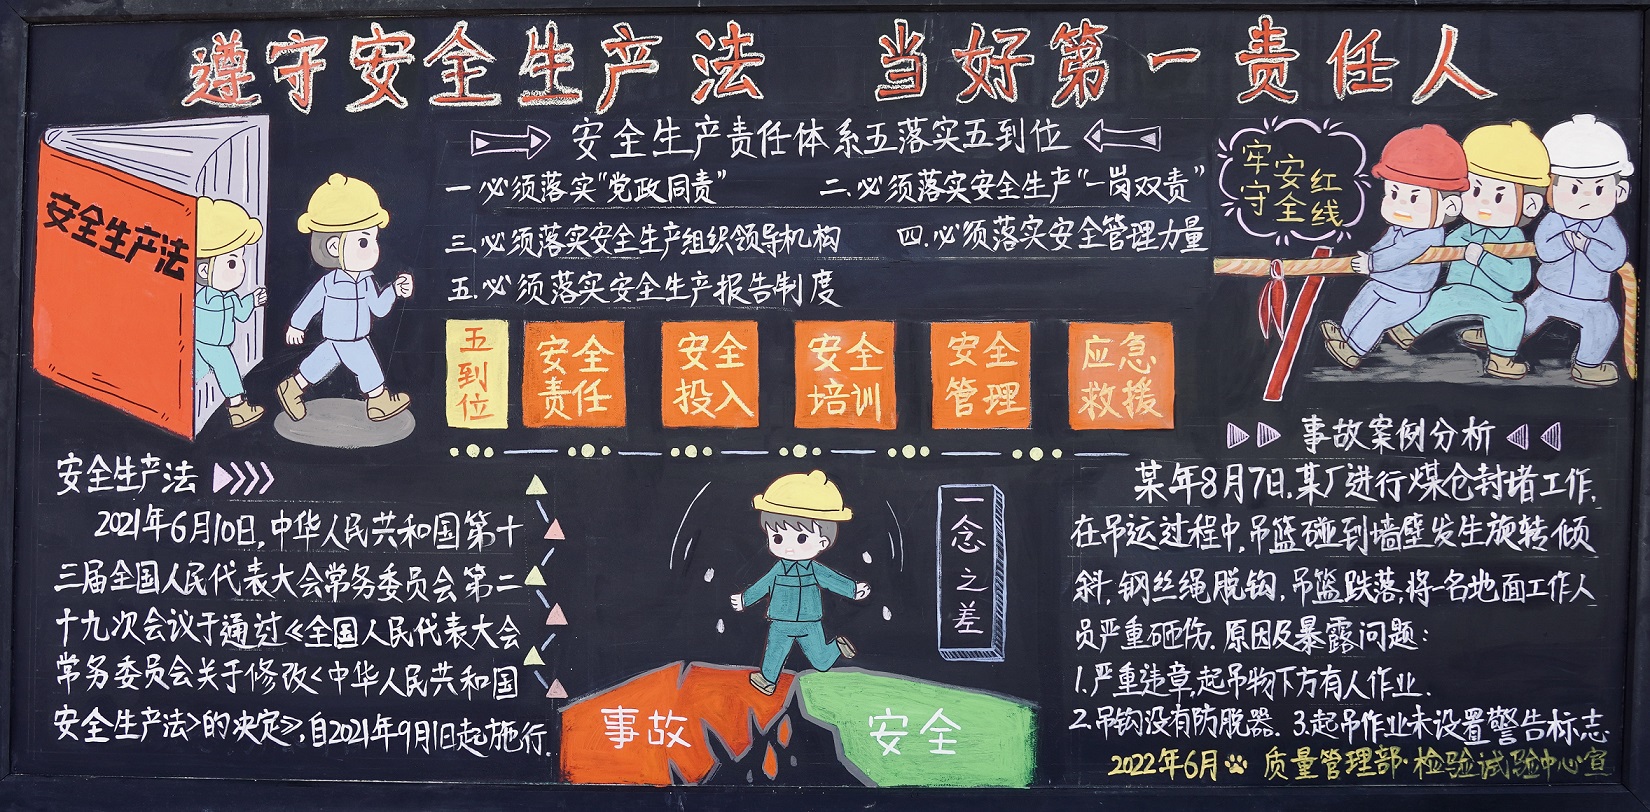 遵守安全生产法 当好第一责任人
安全生产法
安全生产责任体系五落实五到位
一.必须落实“党政同责”
二.必须落实安全生产“一岗双责”
三.必须落实安全生产组织领导机构
四.必须落实安全管理力量
五.必须落实安全生产报告制度
五到位
安全责任
安全投入
安全培训
安全管理
应急救援
牢安红
守全线
安全生产法
2021年6月10日,中华人民共和国第十
三届全国人民代表大会常务委员会第二
十九次会议于通过《全国人民代表大会
常务委员会关于修改<中华人民共和国
安全生产法>的决定》,自2021年9月1日起施行.
一念之差
事故
安全
事故案例分析
某年8月7日,某厂进行煤仓封堵工作,
在吊运过程中,吊篮碰到墙壁发生旋转倾
斜,钢丝绳脱钩,吊篮跌落,将一名地面工作人
员严重砸伤.原因及暴露问题:
1.严重违章,起吊物下方有人作业.
2.吊钩没有防脱器. 3.起吊作业未设置警告标志
2022年6月 质量管理部·检验试验中心宣